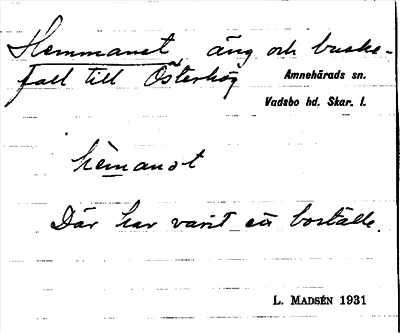 Hemmanet, äng och buske-
fall till Österhög
Amnehärads sn.
Vadsbo hd. Skar. l.
hèmanət
Där har varit ett boställe.
L. MADSÉN 1931